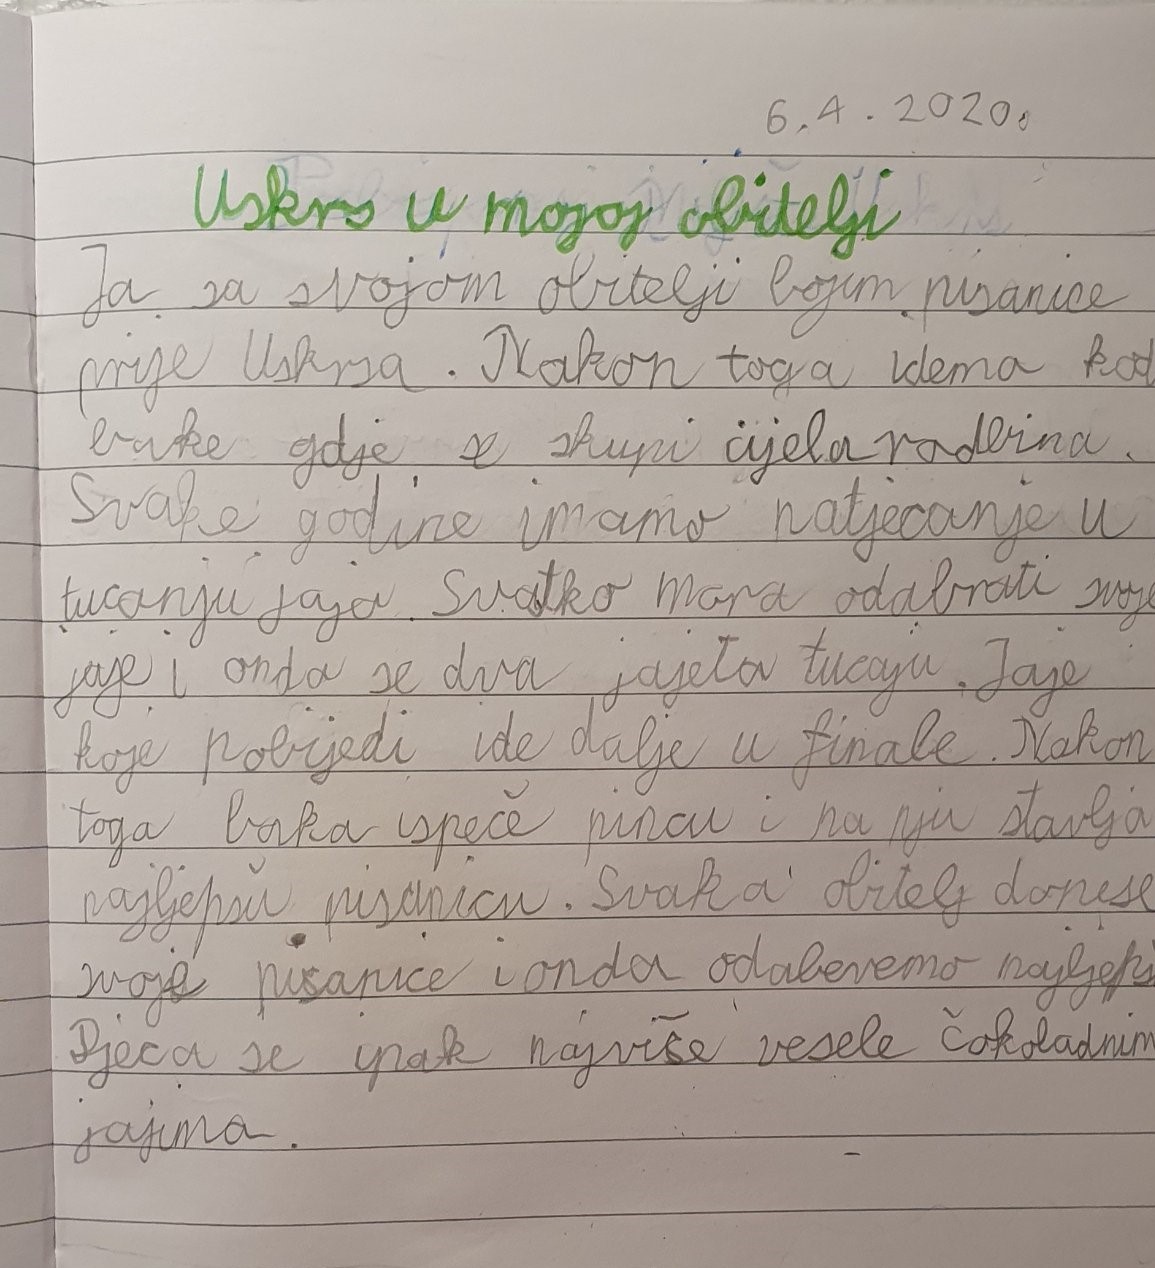 6.4.2020.
Uskrs u mojoj obitelji
Ja sa svojom obitelji bojim pisanice
prije Uskrsa. Nakon toga idemo kod
bake gdje se skupi cijela rodbina.
Svake godine imamo natjecanje u
tucanju jaja. Svatko mora odabrati svoje
jaje i onda se dva jajeta tucaju. Jaje
koje pobijedi ide dalje u finale. Nakon
toga baka ispeče pincu i na nju stavlja
najljepšu pisanicu. Svaka obitelj donese
svoje pisanice i onda odaberemo
Djeca se ipak najviše vesele čokoladnim
jajima.